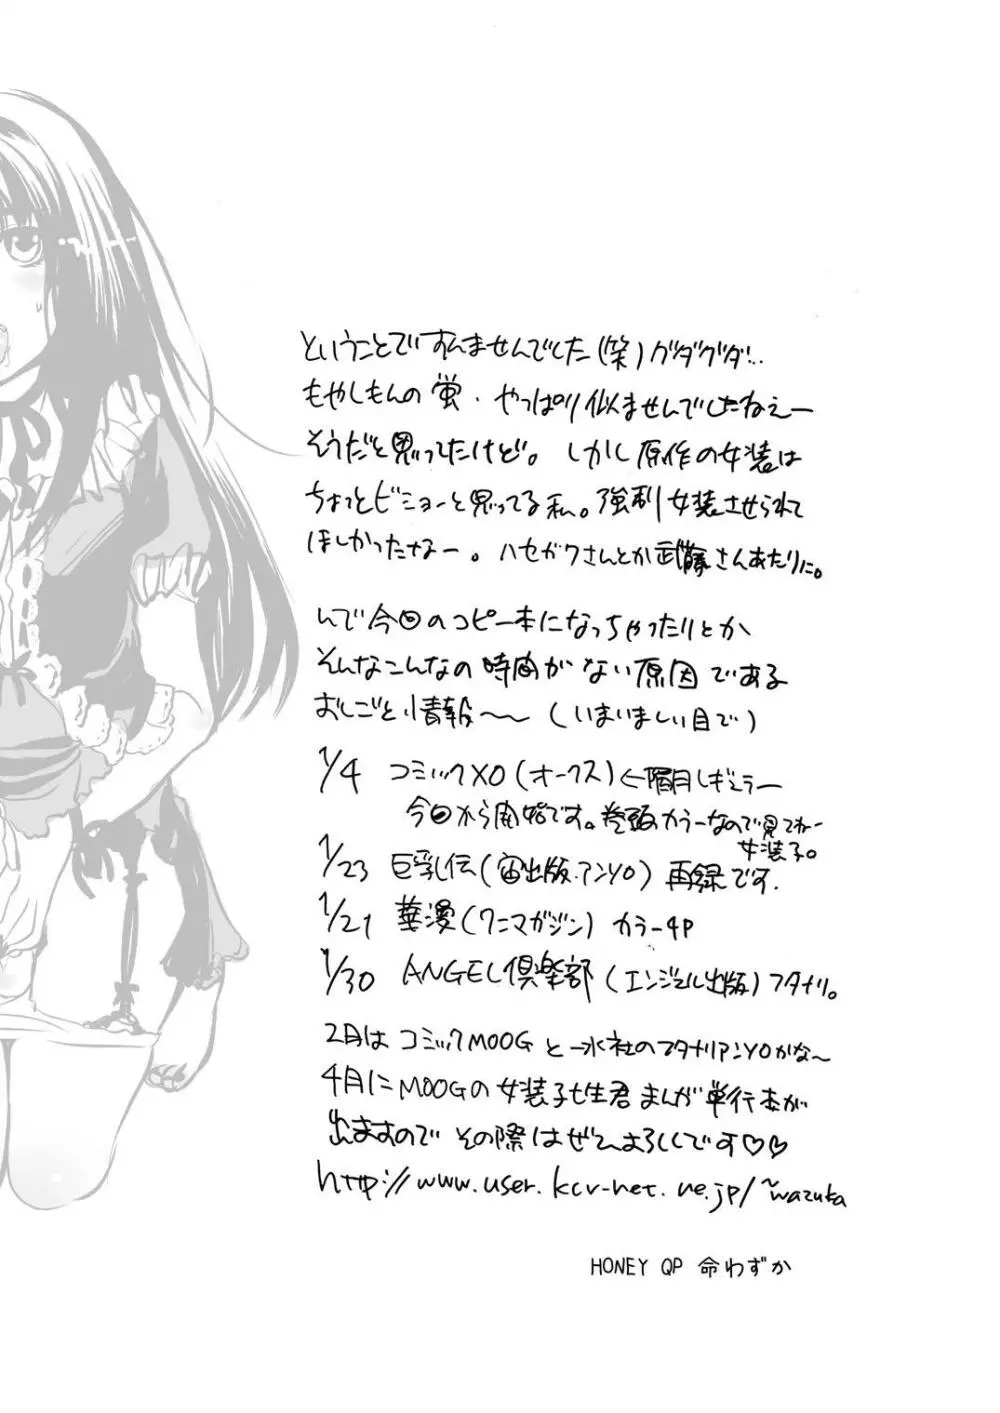 ということですみませんでした(笑)グダグダ…
もやしもんの蛍・やっぱり似ませんでしたねぇー
そうだと思ってたけど。しかし原作の女装は
ちょっとビミョーと思ってる私。強制女装させられて
ほしかったなー。ハセガワさんとか武藤さんあたりに。
んで今回のコピー本になっちゃったりとか
そんなこんなの時間がない原因である
おしごと情報〜〜(いまいましい目で)
1/4 コミックXO(オークス)←隔月レギュラー
今回から開始です。巻頭カラーなので見てねー
女装子。
1/23 巨乳伝(宙出版・アンソロ)再録です.
1/21 華漫(ワニマガジン)カラー4P
1/30 ANGEL倶楽部(エンジェル出版)フタナリ。
2月はコミックMOOGと一水社のフタナリアンソロかな〜
4月にMOOGの女装子七生君まんが単行本が
出ますのでその際はぜひよろしくです♡♡
http://www.user.kcv-net.ne.jp/~wazuka
HONEY QP 命わずか